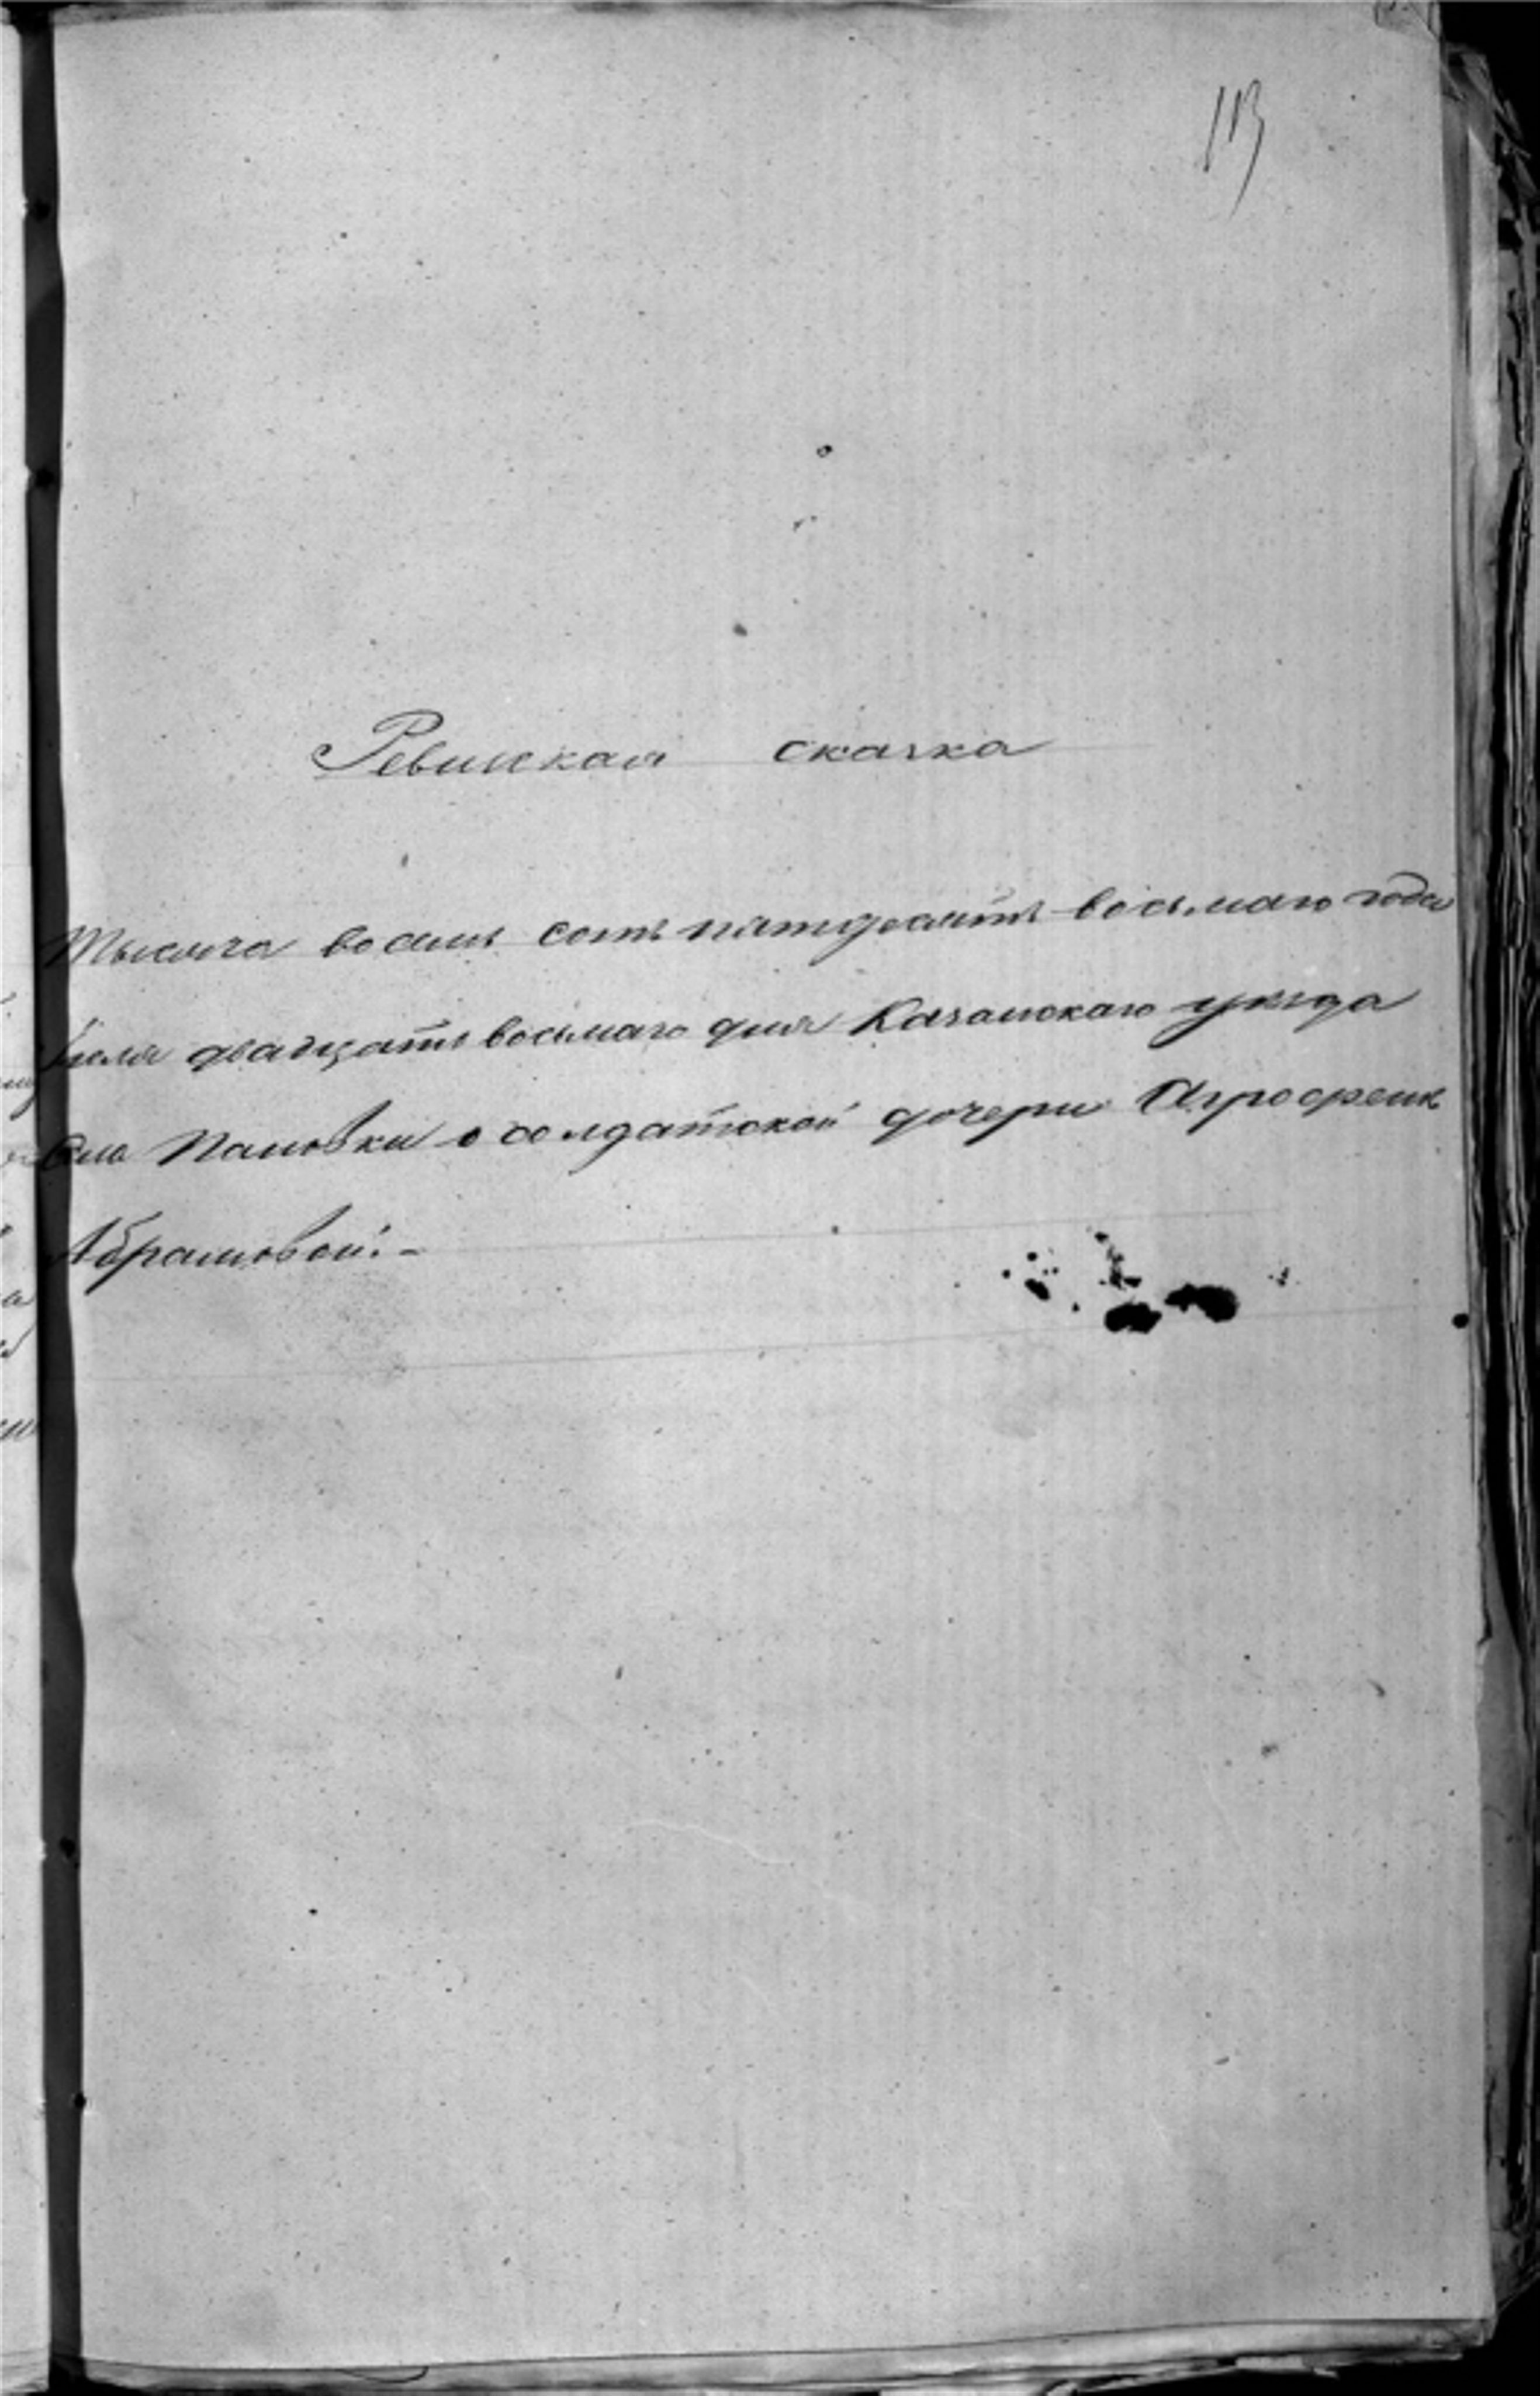 113
Ревизская сказка
Тысяча восемь сотъ пятьдесятъ восьмаго года
Іюля двадцать восьмаго дня Казанскаго уѣзда
Села Пановки о солдатской дочери Агрофенѣ
Абрамовой.-